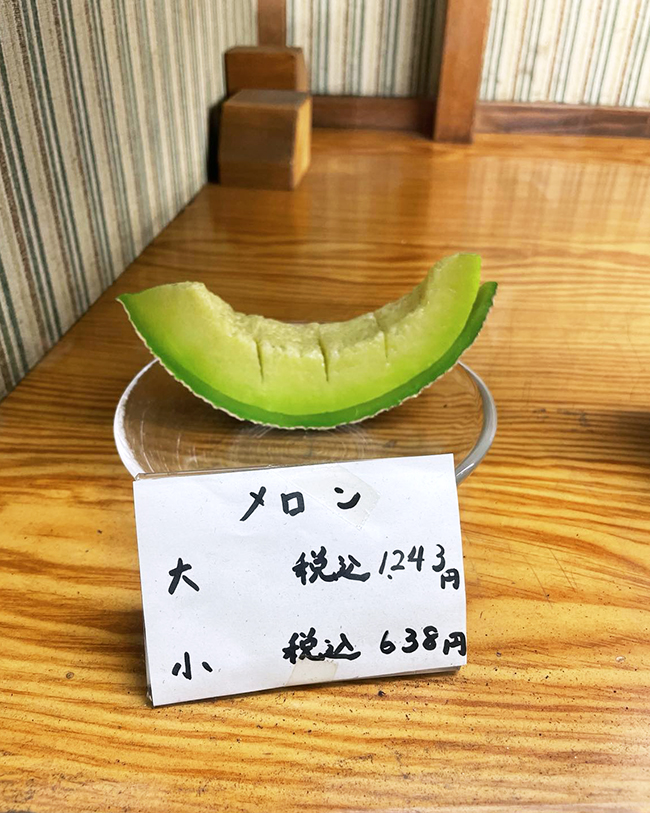 メロン
大 税込 1,243円
小 税込 638円